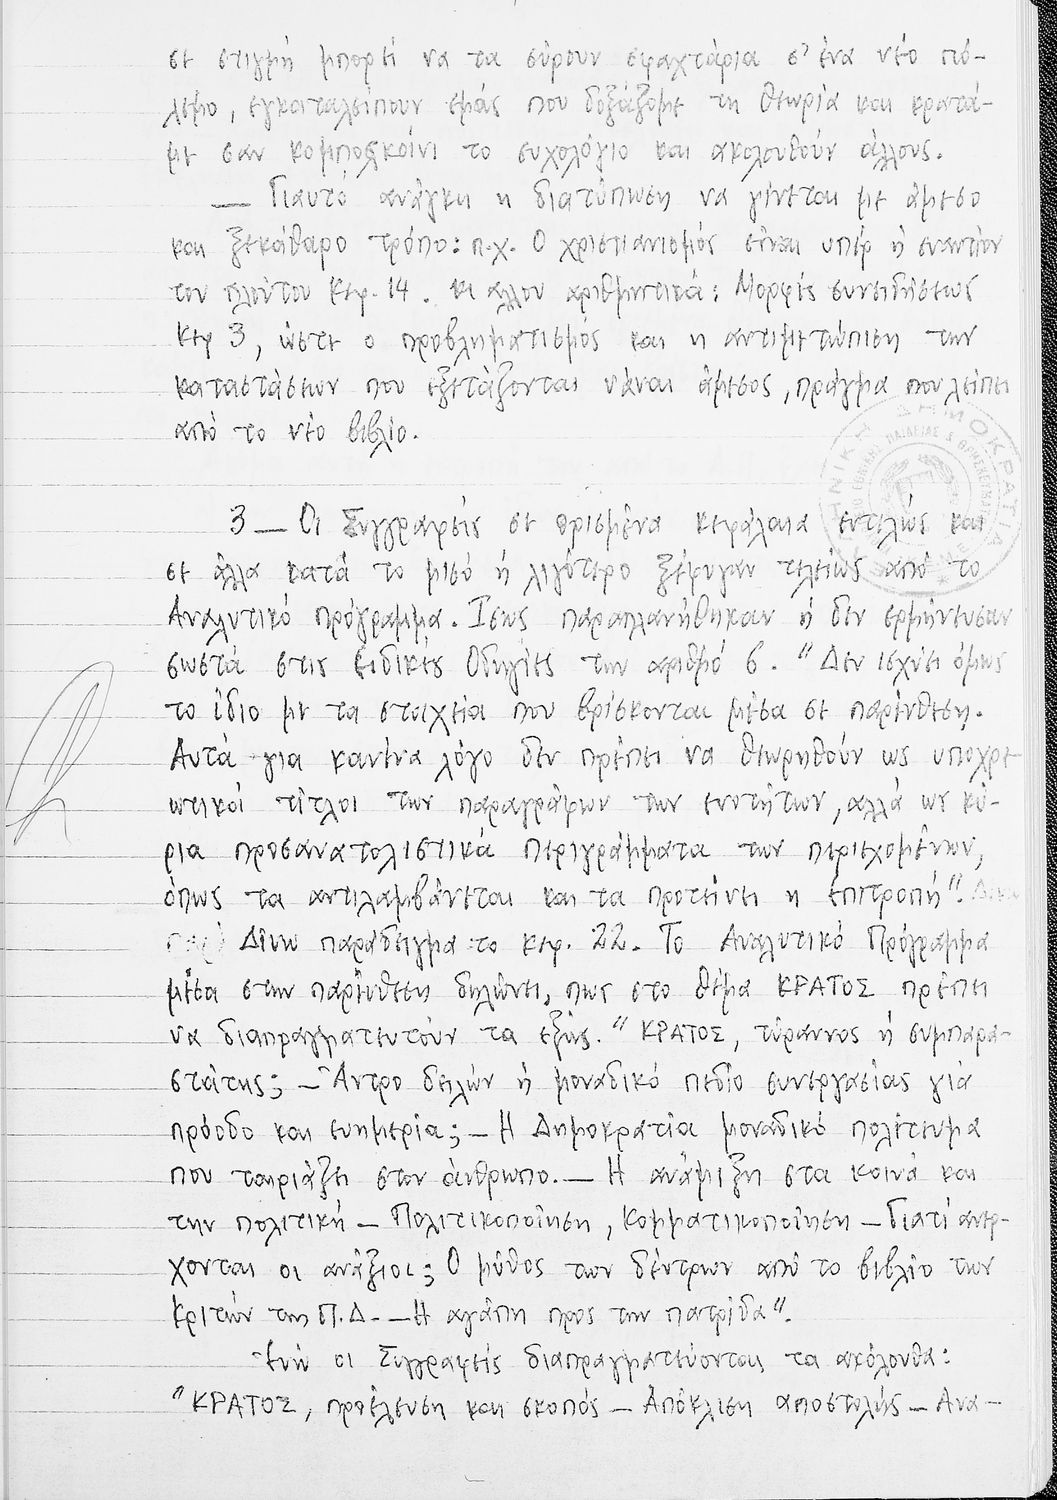 σε στιγμή μπορεί να τα σύρουν σφαχτάρια σ' ένα νέο πό-
λεμο, εγκαταλείπουν εμάς που δοξάζομε τη θεωρία και κρατά-
με σαν κομποσκοίνι το ευχολόγιο και ακολουθούν άλλους.
— Γιαυτό ανάγκη η διατύπωση να γίνεται με άμεσο
και ξεκάθαρο τρόπο: π.χ. Ο χριστιανισμός είναι υπέρ ή εναντίον
του πλούτου Κεφ. 14. κι αλλού αριθμητικά: Μορφές συνειδήσεως
Κεφ 3, ώστε ο προβληματισμός και η αντιμετώπιση των
καταστάσεων που εξετάζονται νάναι άμεσος, πράγμα που λείπει
από το νέο βιβλίο.
3 — Οι Συγγραφείς σε ορισμένα κεφάλαια εντελώς και
σε άλλα κατά το μισό ή λιγότερο ξέφυγαν τελείως από το
Αναλυτικό πρόγραμμα. Ίσως παραπλανήθηκαν ή δεν ερμήνευσαν
σωστά στις Ειδικές Οδηγίες τον αριθμό 6. "Δεν ισχύει όμως
το ίδιο με τα στοιχεία που βρίσκονται μέσα σε παρένθεση.
Αυτά για κανένα λόγο δεν πρέπει να θεωρηθούν ως υποχρε
ωτικοί τίτλοι των παραγράφων των ενοτήτων, αλλά ως κύ-
ρια προσανατολιστικά περιγράμματα των περιεχομένων,
όπως τα αντιλαμβάνεται και τα προτείνει η επιτροπή".
Δίνω παράδειγμα το κεφ. 22. Το Αναλυτικό Πρόγραμμα
μέσα στην παρένθεση δηλώνει, πως στο θέμα ΚΡΑΤΟΣ πρέπει
να διαπραγματευτούν τα εξής. "ΚΡΑΤΟΣ, τύραννος ή συμπαρα-
στάτης; – Άντρο δειλών ή μοναδικό πεδίο συνεργασίας για
πρόοδο και ευημερία; – Η Δημοκρατία μοναδικό πολίτευμα
που ταιριάζει στον άνθρωπο. – Η ανάμιξη στα κοινά και
την πολιτική – Πολιτικοποίηση, Κομματικοποίηση – Γιατί ανέρ-
χονται οι ανάξιοι; Ο μύθος των δέντρων από το βιβλίο των
Κριτών της Π.Δ. – Η αγάπη προς την πατρίδα".
Ενώ οι Συγγραφείς διαπραγματεύονται τα ακόλουθα:
"ΚΡΑΤΟΣ, προέλευση και σκοπός – Απόκλιση αποστολής – Ανα-